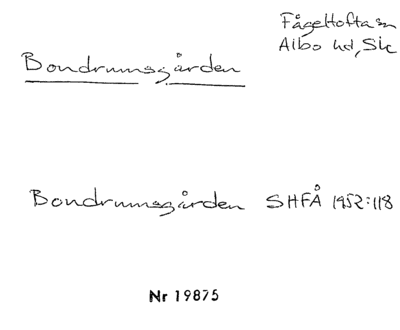 Fågeltofta sn
Albo hd, Sk
Bondrumsgården
Bondrumsgården SHFÅ 1952:118
Nr 19875